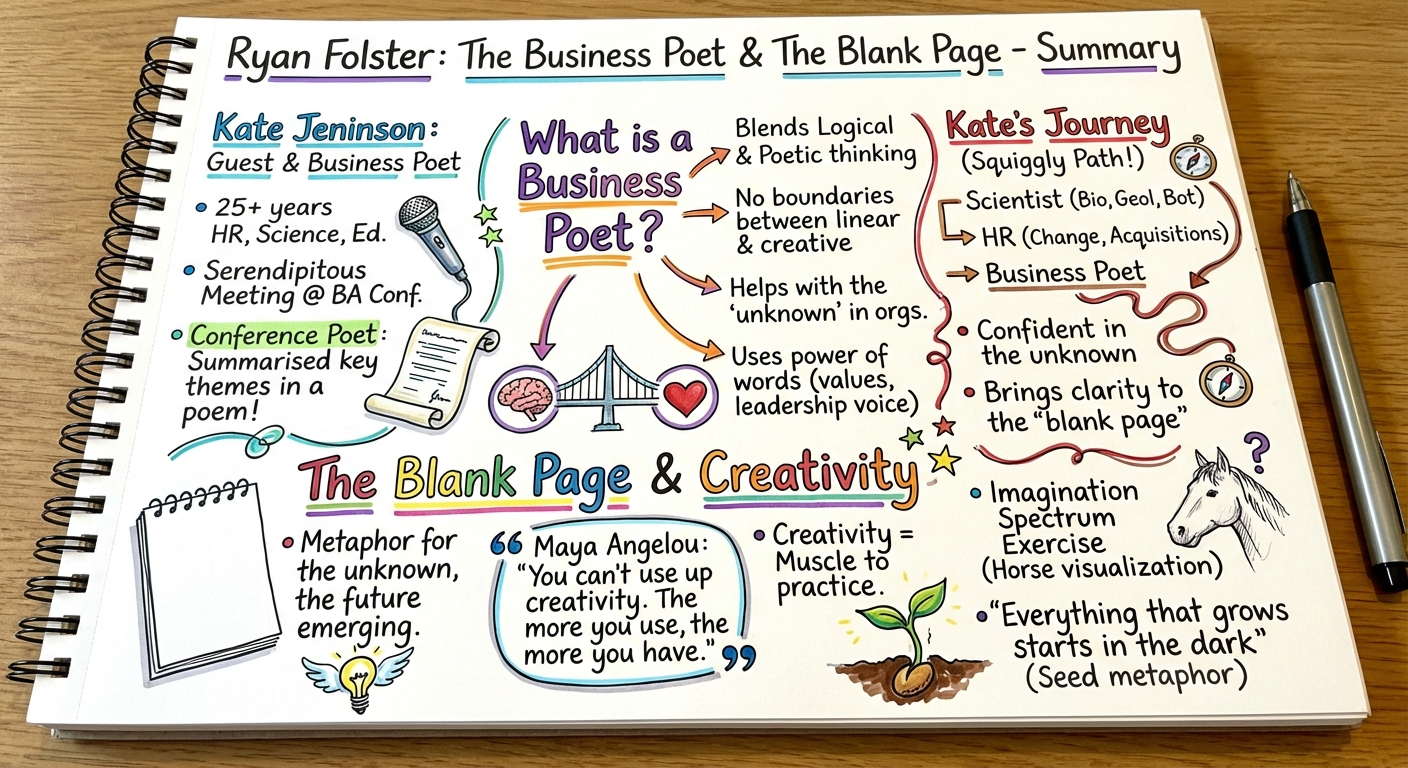 Ryan Folster: The Business Poet & The Blank Page - Summary
Kate Jeninson:
Guest & Business Poet
25+ years
HR, Science, Ed.
Serendipitous
Meeting @ BA Conf.
Conference Poet:
Summarised key
themes in a
poem!
What is a
Business
Poet?
Blends Logical
& Poetic thinking
No boundaries
between linear
& creative
Helps with the
'unknown' in orgs.
Uses power of
words (values,
leadership voice)
Kate's Journey
(Squiggly Path!)
Scientist (Bio, Geol, Bot)
HR (Change, Acquisitions)
Business Poet
Confident in
the unknown
Brings clarity to
the "blank page"
The Blank Page & Creativity
Metaphor for
the unknown,
the future
emerging.
Maya Angelou:
"You can't use up
creativity. The
more you use, the
more you have."
Creativity =
Muscle to
practice.
Imagination
Spectrum
Exercise
(Horse visualization)
?
"Everything that grows
starts in the dark"
(Seed metaphor)